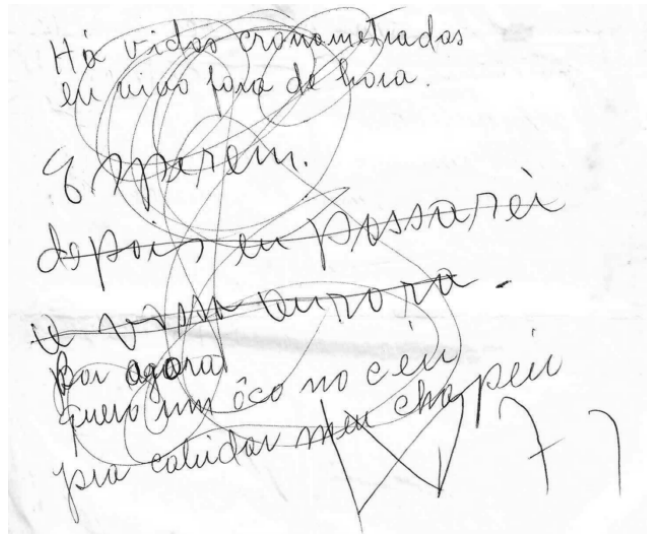 Há vidas cronometradas
eu vivo fora de hora.
q sparem.
depois eu passarei
e vem aurora.
por agora
quero um ôco no céu
pra cahidar meu chapéu
W 71